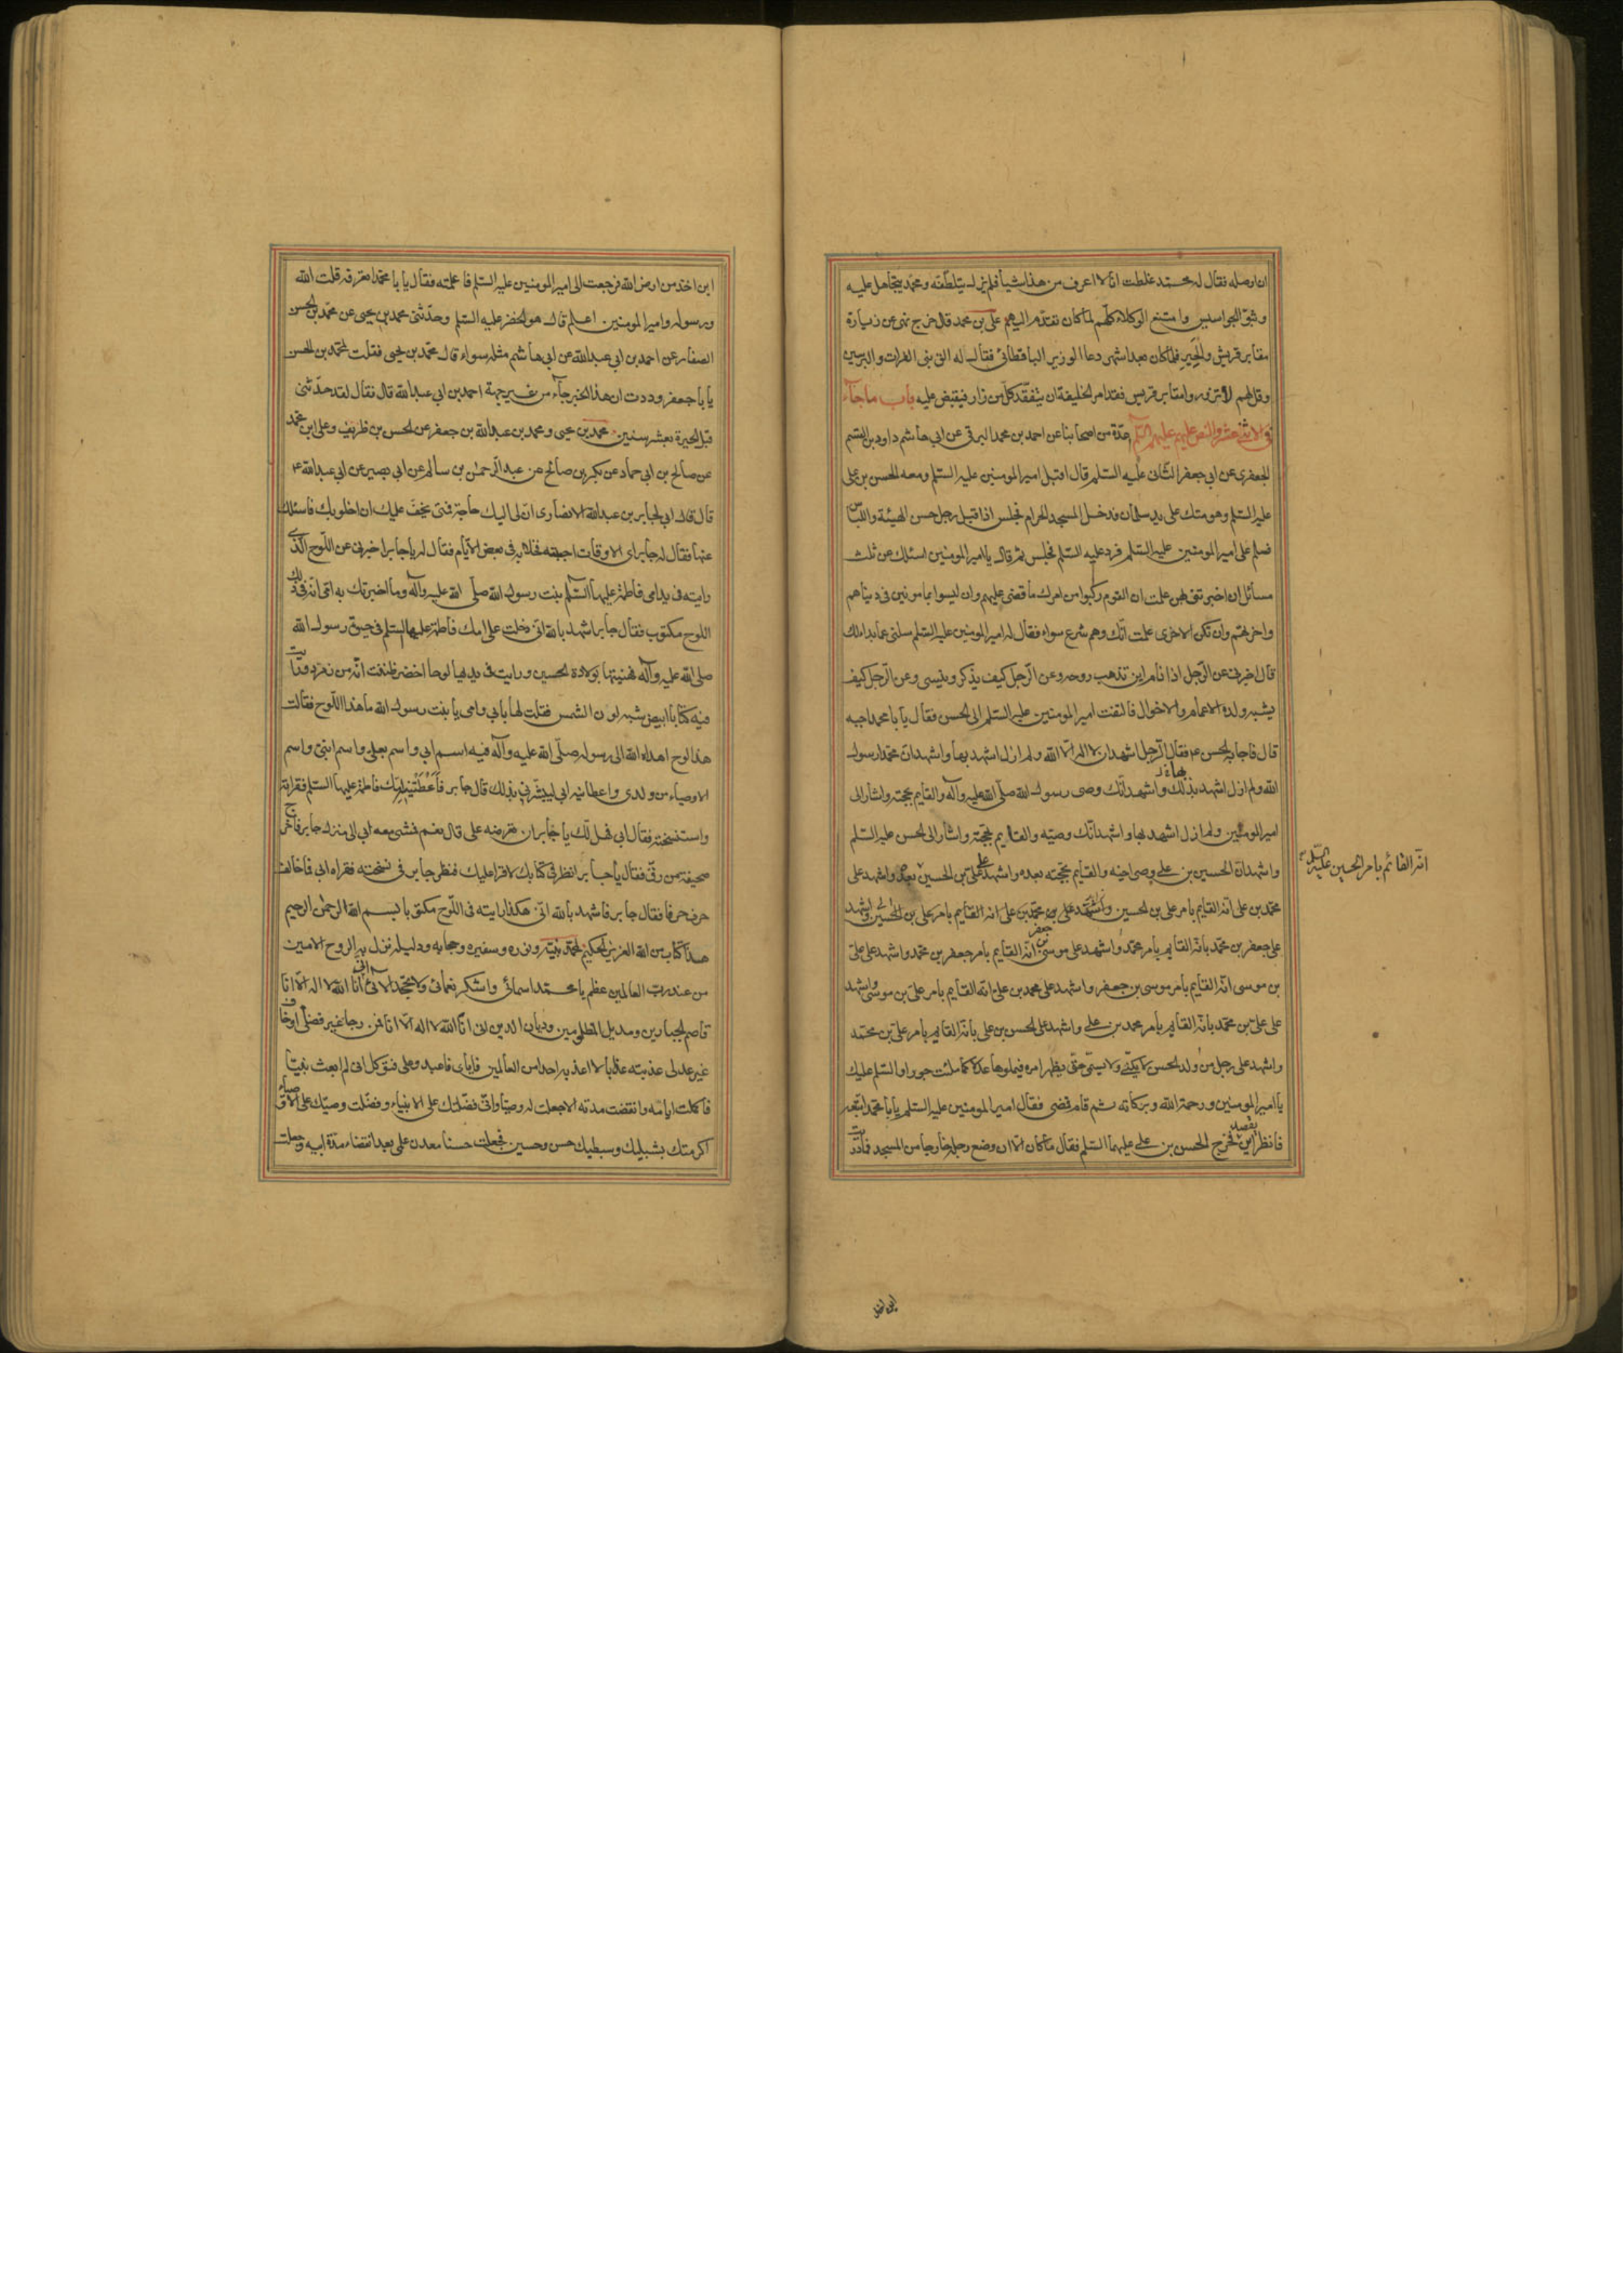 ان اوصله فقال له محمد غلطت انا لا اعرف من هذا شيأ فلم يزل يتلطفه ومحمد يتجاهل عليه
وبثوا الجواسيس وامتنع الوكلاء كلهم لما كان تقدم اليهم على بن محمد قال خرج نهى عن زيارة
مقابر قريش والحير فلما كان بعد اشهر دعا الوزير الباقطائى فقال له الق بنى الفرات والبرسيين
وقل لهم لا تزوروا مقابر قريش فقد امر الخليفة ان يتفقد كل من زار فيقبض عليه باب ما جآء
فى الاثنى عشر والنص عليهم عليهم السلم عدة من اصحابنا عن احمد بن محمد البرقى عن ابى هاشم داود بن القسم
الجعفرى عن ابى جعفر الثانى عليه السلم قال اقبل امير المومنين عليه السلم ومعه الحسن بن على
عليه السلم وهو متك على يد سلمان فدخل المسجد الحرام فجلس اذا قبل رجل حسن الهيئة واللباس
فسلم على امير المومنين عليه السلم فرد عليه السلم فجلس ثم قال يا امير المومنين اسئلك عن ثلث
مسائل ان اخبرتنى بهن علمت ان القوم ركبوا من امرك ما قضى عليهم وان ليسوا بمأمونين فى دنياهم
واخرتهم وان تكن الاخرى علمت انك وهم شرع سواء فقال له امير المومنين عليه السلم سلنى عما بدا لك
قال اخبرنى عن الرجل اذا نام اين تذهب روحه وعن الرجل كيف يذكر وينسى وعن الرجل كيف
يشبه ولده الاعمام والاخوال فالتفت امير المومنين عليه السلم الى الحسن فقال يا با محمد اجبه
قال فاجابه الحسن ع فقال الرجل اشهد ان لا اله الا الله ولم ازل اشهد بها واشهد ان محمدا رسول
الله ولم ازل اشهد بذلك واشهد انك وصى رسول الله صلى الله عليه وآله والقايم بحجته واشار الى
امير المومنين ولم ازل اشهد بها واشهد انك وصيه والقايم بحجته واشار الى الحسن عليه السلم
واشهد ان الحسين بن على وصى اخيه والقايم بحجته بعده واشهد على على بن الحسين بعده واشهد على
انه القائم بامر الحسين عليه السلم
محمد بن على انه القايم بامر على بن الحسين واشهد على بن محمد بن على انه القايم بامر على بن الحسين واشهد
على جعفر بن محمد بانه القايم بامر محمد واشهد على موسى بن جعفر انه القايم بامر جعفر بن محمد واشهد على على
بن موسى انه القايم بامر موسى بن جعفر واشهد على محمد بن على انه القايم بامر على بن موسى واشهد
على على بن محمد بانه القايم بامر محمد بن على واشهد على الحسن بن على بانه القايم بامر على بن محمد
واشهد على رجل من ولد الحسن لا يكنى ولا يسمى حتى يظهر امره فيملوها عدلا كما ملئت جورا والسلم عليك
يا امير المومنين ورحمة الله وبركاته ثم قام فمضى فقال امير المومنين عليه السلم يا با محمد اتبعه
فانظر اين يقصد فخرج الحسن بن على عليهما السلم فقال ما كان الا ان وضع رجله خارجا من المسجد فما دريت
اين اخذ
اين اخذ من ارض الله فرجعت الى امير المومنين عليه السلم فاعلمته فقال يا با محمد اتعرفه قلت الله
ورسوله وامير المومنين اعلم قال هو الخضر عليه السلم وحدثنى محمد بن يحيى عن محمد بن الحسن
الصفار عن احمد بن ابى عبدالله عن ابى هاشم مثله سواء قال محمد بن يحيى فقلت لمحمد بن الحسن
يا با جعفر وددت ان هذا الخبر جآء من غير جهة احمد بن ابى عبدالله قال فقال لقد حدثنى
قبل الحيرة بعشر سنين محمد بن يحيى ومحمد بن عبدالله بن جعفر عن الحسن بن ظريف وعلى ابن محمد
عن صالح بن ابى حماد عن بكر بن صالح عن عبد الرحمن بن سالم عن ابى بصير عن ابى عبدالله ع
قال قال ابى لجابر بن عبدالله الانصارى ان لى اليك حاجة فمتى يخف عليك ان اخلو بك فاسئلك
عنها فقال له جابر اى الاوقات احببته فخلا به فى بعض الايام فقال له يا جابر اخبرنى عن اللوح الذى
رايته فى يد امى فاطمة عليها السلم بنت رسول الله صلى الله عليه وآله وما اخبرتك به امى انه فى ذلك
اللوح مكتوب فقال جابر اشهد بالله انى دخلت على امك فاطمة عليها السلم فى حيوة رسول الله
صلى الله عليه وآله فهنيتها بولادة الحسين ورايت فى يديها لوحا اخضر ظننت انه من زمرد ورايت
فيه كتابا ابيض شبه لون الشمس فقلت لها بابى وامى يا بنت رسول الله ما هذا اللوح فقالت
هذا لوح اهداه الله الى رسوله صلى الله عليه وآله فيه اسم ابى واسم بعلى واسم ابنى واسم
الاوصياء من ولدى واعطانيه ابى ليبشرنى بذلك قال جابر فاعطتنيه امك فاطمة عليها السلم فقراته
واستنسخته فقال ابى فهل لك يا جابر ان تعرضه على قال نعم فمشى معه ابى الى منزل جابر فاخرج
صحيفة من رق فقال يا جابر انظر فى كتابك لاقرا عليك فنظر جابر فى نسخته فقراه ابى فما خالف
حرف حرفا فقال جابر فاشهد بالله انى هكذا رايته فى اللوح مكتوبا بسم الله الرحمن الرحيم
هذا كتاب من الله العزيز الحكيم لمحمد نبيه ونوره وسفيره وحجابه ودليله نزل به الروح الامين
من عند رب العالمين عظم يا محمد اسمائى واشكر نعمائى ولا تجحد آلائى انى انا الله لا اله الا انا
قاصم الجبارين ومديل المظلومين وديان الدين انى انا الله لا اله الا انا فمن رجا غير فضلى او خاف
غير عدلى عذبته عذابا لا اعذبه احدا من العالمين فاياى فاعبد وعلى فتوكل انى لم ابعث نبيا
فاكملت ايامه وانقضت مدته الا جعلت له وصيا وانى فضلتك على الانبياء وفضلت وصيك على الاوصياء
اكرمتك بشبليك وسبطيك حسن وحسين فجعلت حسنا معدن علمى بعد انقضاء مدة ابيه وجعلت